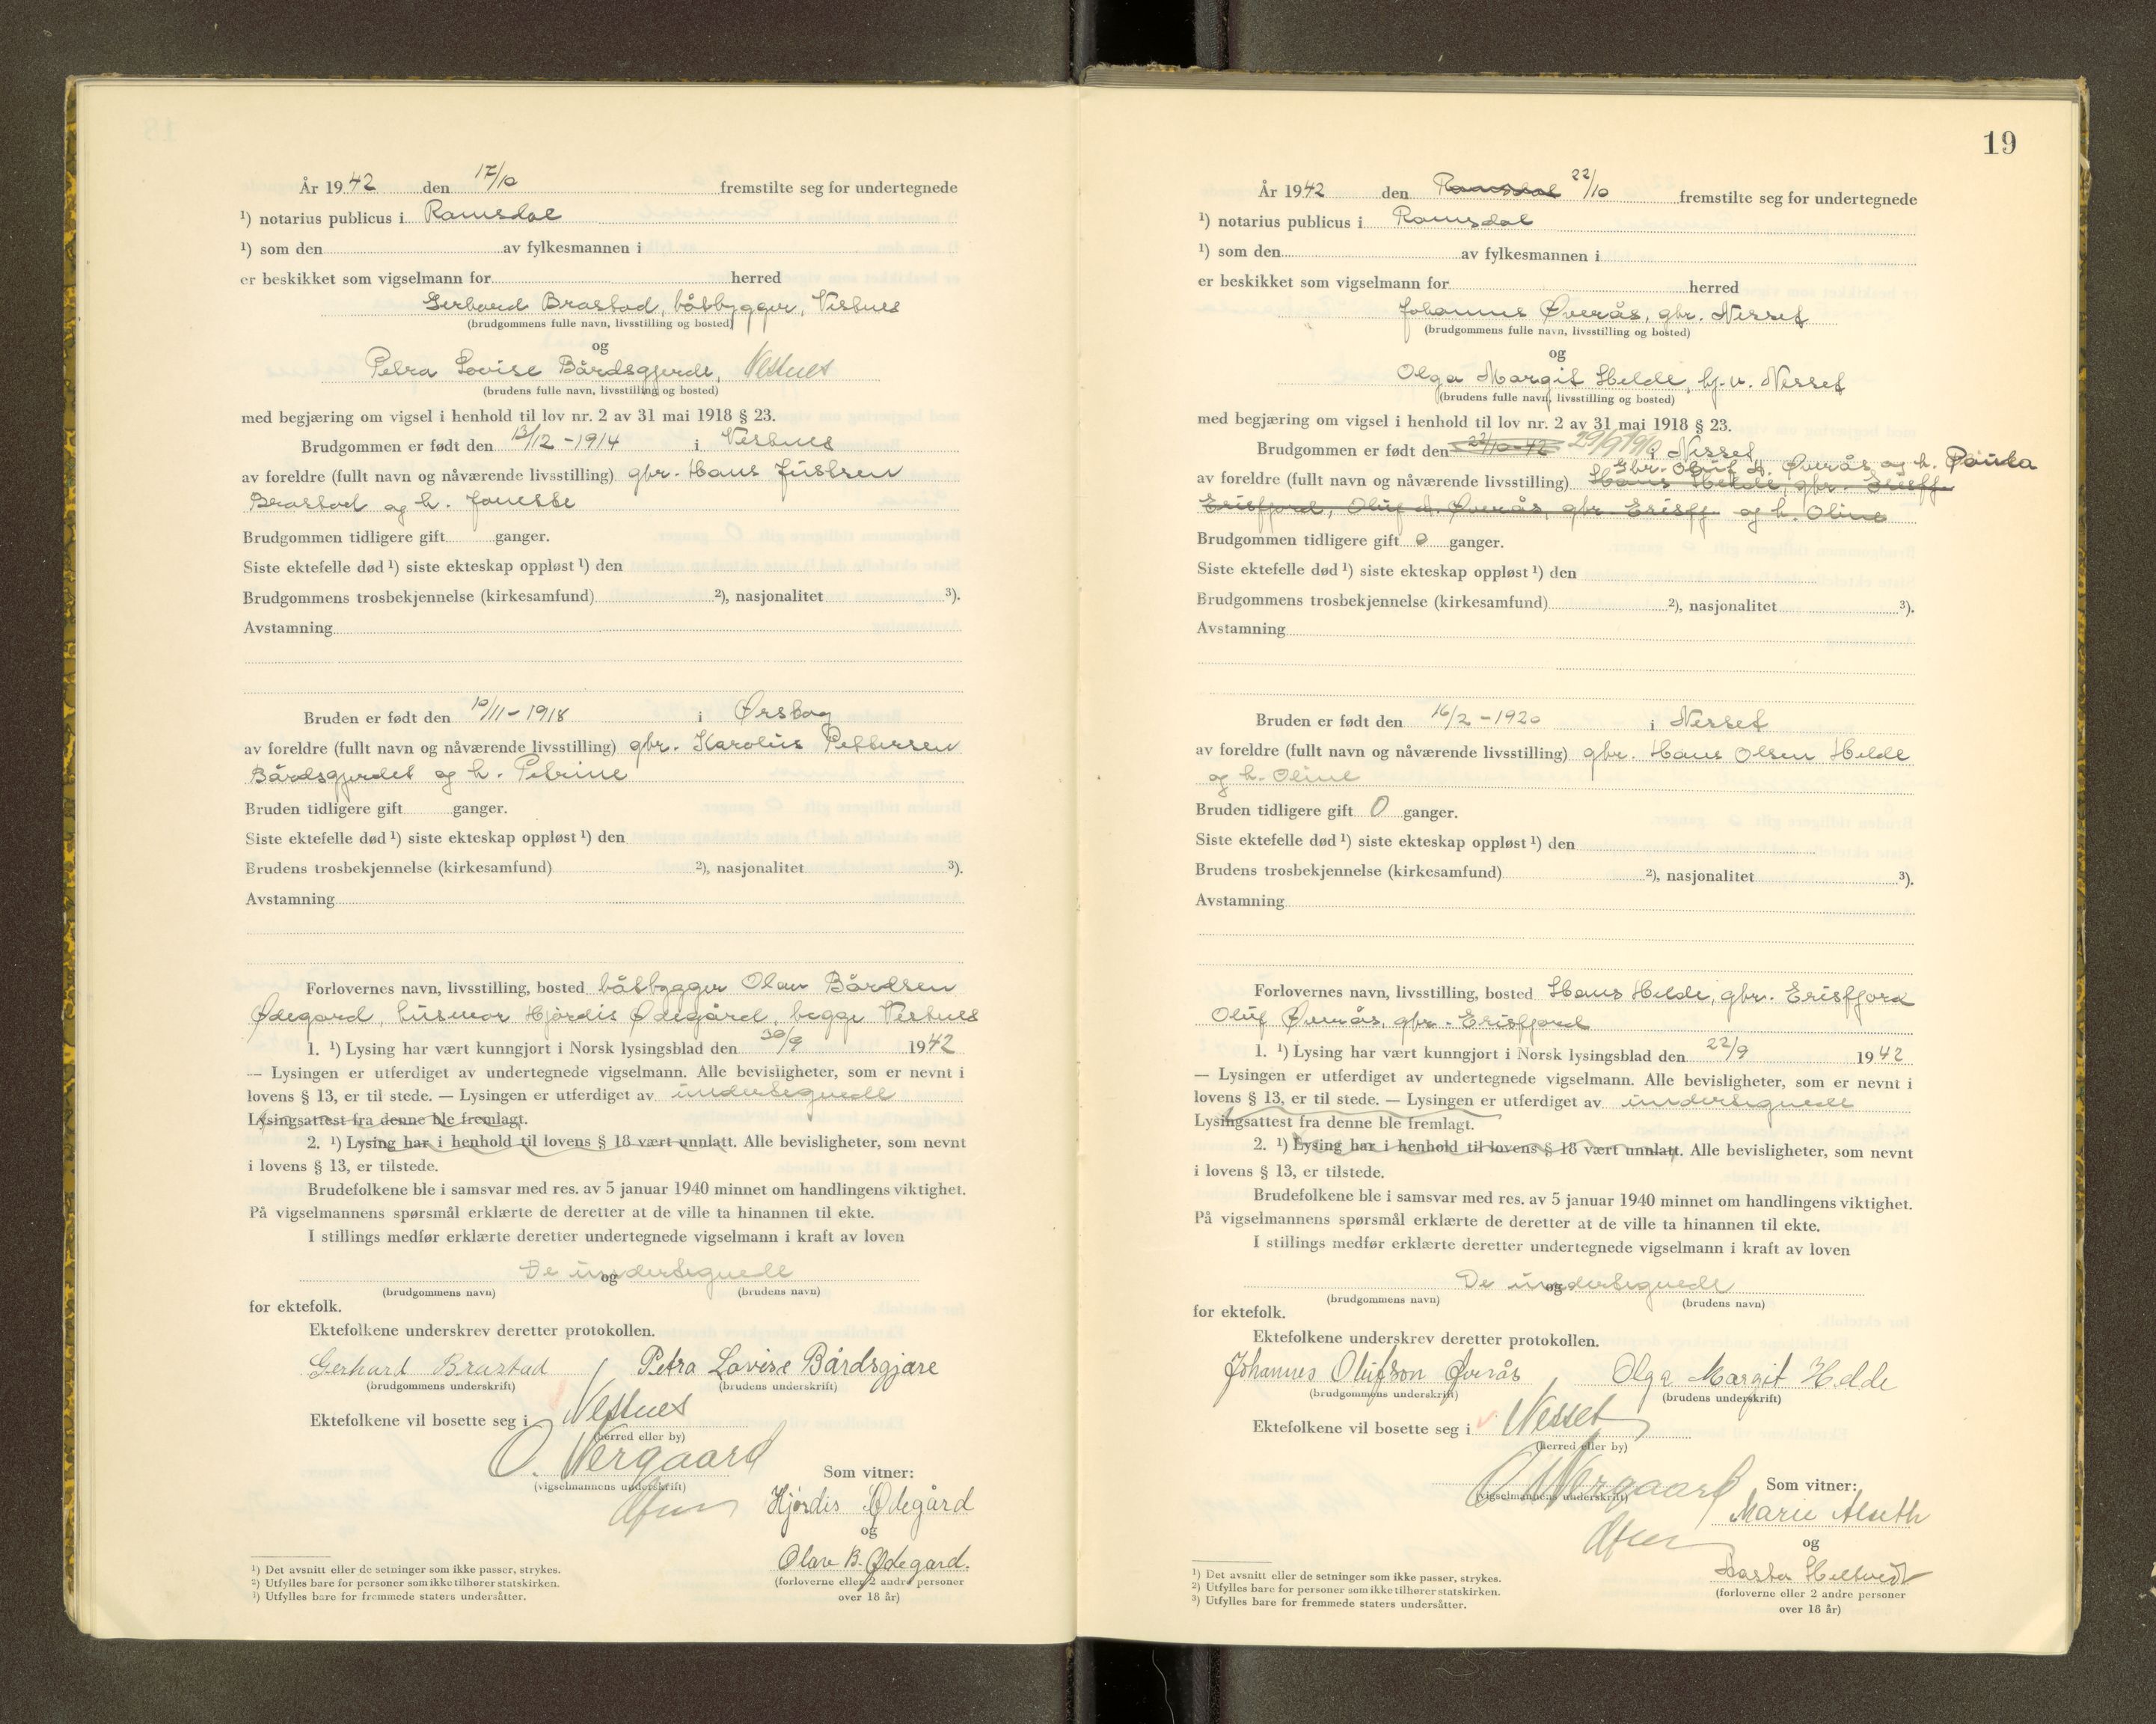 År 1942 den 17/10 fremstilte seg for undertegnede
¹) notarius publicus i Romsdal
¹) som den av fylkesmannen i
er beskikket som vigselmann for herred
Gerhard Brastad, båtbygger, Vestnes
(brudgommens fulle navn, livsstilling og bosted)
og
Petra Lovise Bårdsgjerde, Vestnes
(brudens fulle navn, livsstilling og bosted)
med begjæring om vigsel i henhold til lov nr. 2 av 31 mai 1918 § 23.
Brudgommen er født den 13/12 - 1914 i Vestnes
av foreldre (fullt navn og nåværende livsstilling) gbr. Hans Justsen
Brastad og h. Jonette
Brudgommen tidligere gift ganger.
Siste ektefelle død ¹) siste ekteskap oppløst ¹) den
Brudgommens trosbekjennelse (kirkesamfund) ²), nasjonalitet ³).
Avstamning
Bruden er født den 10/11 - 1918 i Ørskog
av foreldre (fullt navn og nåværende livsstilling) gbr. Karolus Pettersen
Bårdsgjerdet og h. Petrine
Bruden tidligere gift ganger.
Siste ektefelle død ¹) siste ekteskap oppløst ¹) den
Brudens trosbekjennelse (kirkesamfund) ²), nasjonalitet ³).
Avstamning
Forlovernes navn, livsstilling, bosted båtbygger Olav Bårdsen
Ødegård, husmor Hjördis Ødegård, begge Vestnes
1. ¹) Lysing har vært kunngjort i Norsk lysingsblad den 30/9 1942
— Lysingen er utferdiget av undertegnede vigselmann. Alle bevisligheter, som er nevnt i
lovens § 13, er til stede. — Lysingen er utferdiget av undertegnede
Lysingsattest fra denne ble fremlagt.
2. ¹) Lysing har i henhold til lovens § 18 vært unnlatt. Alle bevisligheter, som nevnt
i lovens § 13, er tilstede.
Brudefolkene ble i samsvar med res. av 5 januar 1940 minnet om handlingens viktighet.
På vigselmannens spørsmål erklærte de deretter at de ville ta hinannen til ekte.
I stillings medfør erklærte deretter undertegnede vigselmann i kraft av loven
De undertegnede
og
(brudgommens navn) (brudens navn)
for ektefolk.
Ektefolkene underskrev deretter protokollen.
Gerhard Brastad / Petra Lovise Bårdsgjære
(brudgommens underskrift) (brudens underskrift)
Ektefolkene vil bosette seg i Vestnes
(herred eller by)
O. Vergaard
(vigselmannens underskrift)
Som vitner:
Hjördis Ødegård
og
Olav B. Ødegard.
(forloverne eller 2 andre personer
over 18 år)
¹) Det avsnitt eller de setninger som ikke passer, strykes.
²) Utfylles bare for personer som ikke tilhører statskirken.
³) Utfylles bare for fremmede staters undersåtter.
19
År 1942 den Romsdal 22/10 fremstilte seg for undertegnede
¹) notarius publicus i Romsdal
¹) som den av fylkesmannen i
er beskikket som vigselmann for herred
Johannes Øverås, gbr. Nesset
(brudgommens fulle navn, livsstilling og bosted)
og
Olga Margit Helde, hj.v. Nesset
(brudens fulle navn, livsstilling og bosted)
med begjæring om vigsel i henhold til lov nr. 2 av 31 mai 1918 § 23.
Brudgommen er født den 22/10-42 29/9 1910 i Nesset
Gbr. Oluf A. Øverås og h. Paula
av foreldre (fullt navn og nåværende livsstilling) Hans Helde, gbr. Erisfj.
Erisfjord, Oluf A. Øverås, gbr. Erisfj. og h. Oline
Brudgommen tidligere gift 0 ganger.
Siste ektefelle død ¹) siste ekteskap oppløst ¹) den
Brudgommens trosbekjennelse (kirkesamfund) ²), nasjonalitet ³).
Avstamning
Bruden er født den 16/2 - 1920 i Nesset
av foreldre (fullt navn og nåværende livsstilling) gbr. Hans Olsen Helde
og h. Oline
Bruden tidligere gift 0 ganger.
Siste ektefelle død ¹) siste ekteskap oppløst ¹) den
Brudens trosbekjennelse (kirkesamfund) ²), nasjonalitet ³).
Avstamning
Forlovernes navn, livsstilling, bosted Hans Helde, gbr. Erisfjord
Oluf Øverås, gbr. Erisfjord
1. ¹) Lysing har vært kunngjort i Norsk lysingsblad den 22/9 1942
— Lysingen er utferdiget av undertegnede vigselmann. Alle bevisligheter, som er nevnt i
lovens § 13, er til stede. — Lysingen er utferdiget av undertegnede
Lysingsattest fra denne ble fremlagt.
2. ¹) Lysing har i henhold til lovens § 18 vært unnlatt. Alle bevisligheter, som nevnt
i lovens § 13, er tilstede.
Brudefolkene ble i samsvar med res. av 5 januar 1940 minnet om handlingens viktighet.
På vigselmannens spørsmål erklærte de deretter at de ville ta hinannen til ekte.
I stillings medfør erklærte deretter undertegnede vigselmann i kraft av loven
De undertegnede
og
(brudgommens navn) (brudens navn)
for ektefolk.
Ektefolkene underskrev deretter protokollen.
Johannes Olufson Øverås / Olga Margit Helde
(brudgommens underskrift) (brudens underskrift)
Ektefolkene vil bosette seg i Nesset
(herred eller by)
O. Vergaard
(vigselmannens underskrift)
Som vitner:
Marie
og
(forloverne eller 2 andre personer
over 18 år)
¹) Det avsnitt eller de setninger som ikke passer, strykes.
²) Utfylles bare for personer som ikke tilhører statskirken.
³) Utfylles bare for fremmede staters undersåtter.